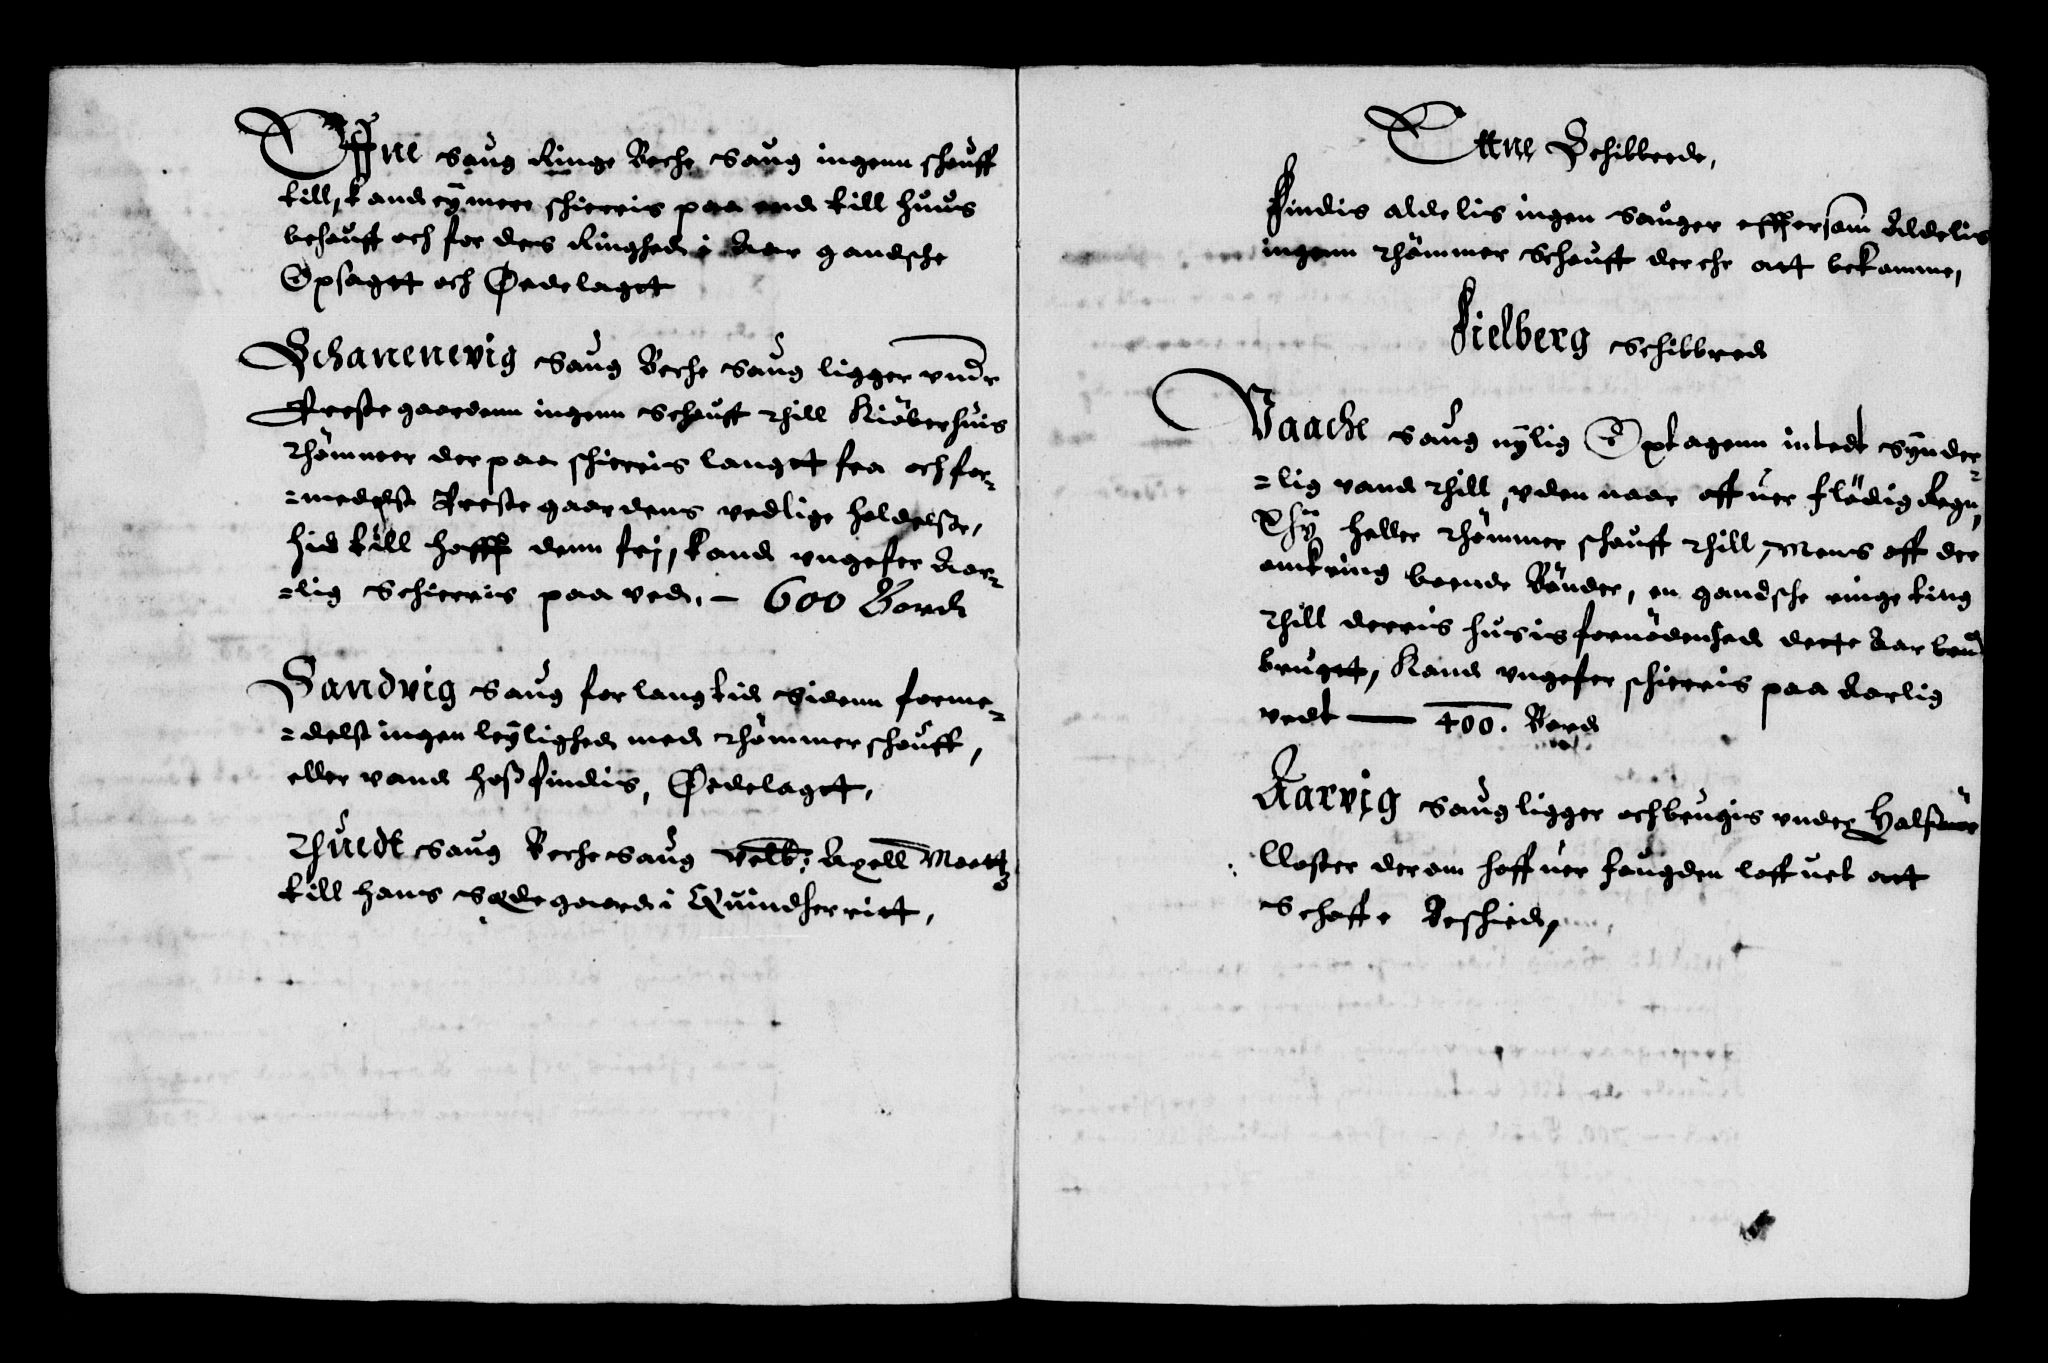 Øffne Saug Ringe Beche Saug ingenn schouff
till, kand ey mere schierris paa end till huus
behouff och for dens Ringhed i Aar gandsche
Opsagtt och Ødelagtt
Schanenevig Saug Beche Saug ligger vnder
Prestegaardenn ingenn Schouff thill Kiöberhuis
thömmer der paa schierris langtt fra och for¬
=medelst Prestegaardens vedlige holdelsse,
hid till hafft denn frj, kand vngefer Aar¬
=lig Schierris paa ved. — 600 Bord
Sandvig Saug for lang tid Sidenn forme¬
=delst ingen leylighed med thömmer schouff,
eller vand hoß findis, Ødelagtt,
thuedt Saug Beche Saug velb: Axell Maattz
till hans Sædegaard i Quindherritt,
Ettne Schibbrede,
Findis aldelis ingen Sauger effthersom Aldelis
ingenn thömmer Schouff der ehr att bekomme,
Fielberg Schibbred
Vaache Saug nylig Optagenn intedt Synder¬
=lig vand thill, vden naar offuer flödig Regn,
Ehy heller thömmer schouff thill, Mens aff der
omkring boende Bönder, en gandsche ringe ting
thill derris husis fornödenhed dette Aar
brugtt, Kand vngefer schierris paa Aarlig
vedt — 400. Bord
Aarvig Saug ligger och brugis vnder Halsnöe
Closter der om haffuer fougden loffuet att
Schaffe Beschied,